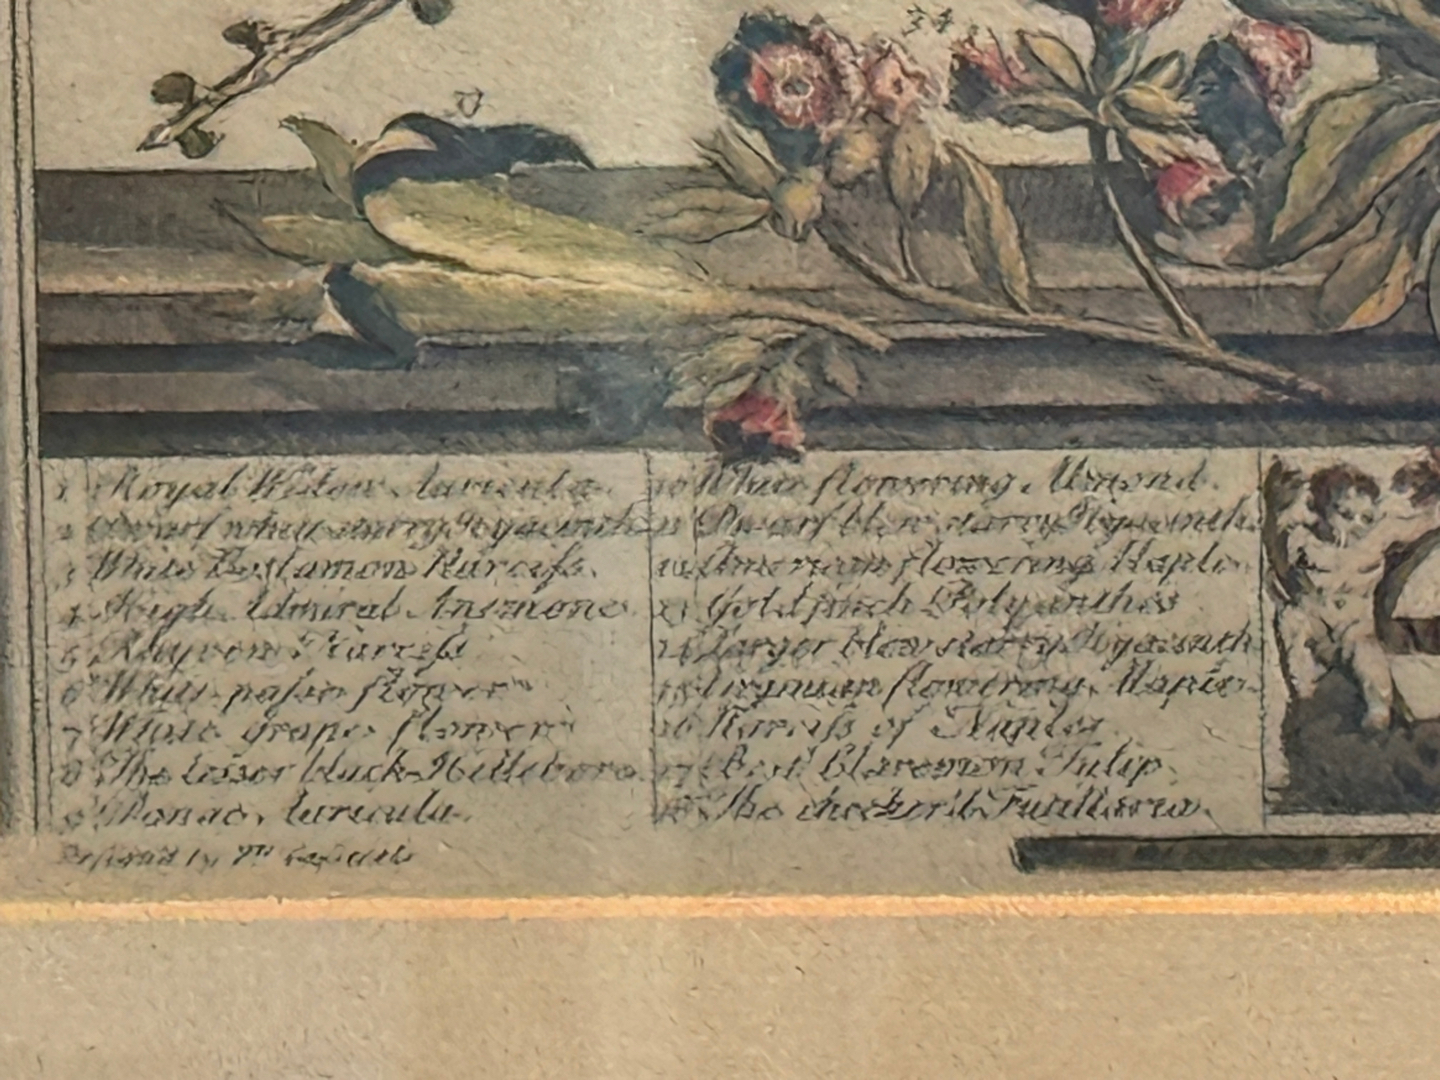 1 Royal Widow Auricula.
2 Dwarf white starry Hyacinth
3 White Narciss.
4 High Admiral Anemone
5 Narciss
6 White flower
7 White grape flower
8 The lesser black Hellebore
9 Danae Auricula.
10 White flowering Almond.
11 Dwarf blew starry Hyacinth.
12 American flowering Maple.
13 Goldfinch Polyanthos
14 Larger blew starry Hyacinth
15 Virginian flowering Maple.
16 Narciss of Naples
17 Best Claremon Tulip.
18 The checker'd Fritillaria.